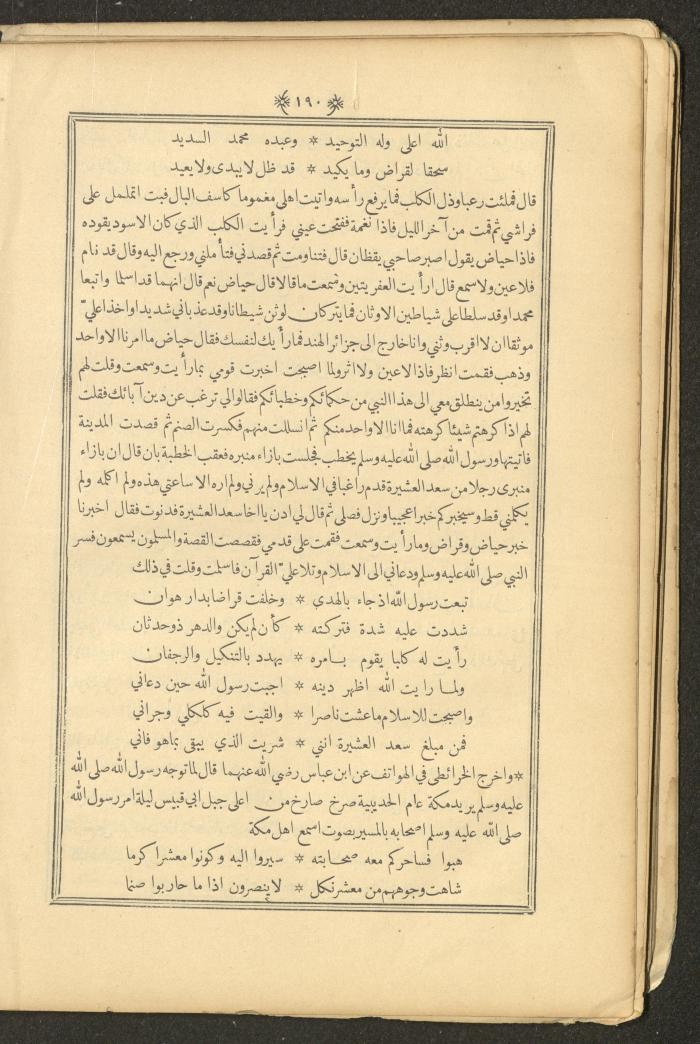 ١٩٠
الله اعلى وله التوحيد * وعبده محمد السديد
سحقا لقراض وما يكيد * قد ظل لا يبدى ولا يعيد
قال فملئت رعبا وذل الكلب فما يرفع رأسه واتيت اهلى مغموما كاسف البال فبت اتململ على
فراشي ثم قمت من آخر الليل فاذا نغمة ففتحت عيني فرأيت الكلب الذي كان الاسود يقوده
فاذا حياض يقول اصبر صاحبي يقظان قال فتناومت ثم قصدني فتأملني ورجع اليه وقال قد نام
فلا عين ولا سمع قال ارأيت العفريتين وسمعت ما قالا قال حياض نعم قال انهما قد اسلما واتبعا
محمدا وقد سلطا على شياطين الاوثان فما يتركان لوثن شيطانا وقد عذباني شديدا واخذا عليّ
موثقا ان لا اقرب وثني وانا خارج الى جزائر الهند فما رأيك لنفسك فقال حياض ما امرنا الا واحد
وذهب فقمت انظر فاذا لا عين ولا اثر ولما اصبحت اخبرت قومي بما رأيت وسمعت وقلت لهم
تخيروا من ينطلق معي الى هذا النبي من حكمائكم وخطبائكم فقالوا لي ترغب عن دين آبائك فقلت
لهم اذا كرهتم شيئا كرهته فما انا الا واحد منكم ثم انسللت منهم فكسرت الصنم ثم قصدت المدينة
فاتيتها ورسول الله صلى الله عليه وسلم يخطب فجلست بازاء منبره فعقب الخطبة بان قال ان بازاء
منبرى رجلا من سعد العشيرة قدم راغبا في الاسلام ولم يرني ولم اره الا ساعتي هذه ولم اكلمه ولم
يكلمني قط وسيخبركم خبرا عجيبا ونزل فصلى ثم قال لي ادن يا اخا سعد العشيرة فدنوت فقال اخبرنا
خبر حياض وقراض وما رأيت وسمعت فقمت على قدمي فقصصت القصة والمسلمون يسمعون فسر
النبي صلى الله عليه وسلم ودعاني الى الاسلام وتلا عليّ القرآن فاسلمت وقلت في ذلك
تبعت رسول الله اذ جاء بالهدي * وخلفت قراضا بدار هوان
شددت عليه شدة فتركته * كأن لم يكن والدهر ذو حدثان
رأيت له كلبا يقوم بامره * يهدد بالتنكيل والرجفان
ولما رايت الله اظهر دينه * اجبت رسول الله حين دعاني
واصبحت للاسلام ما عشت ناصرا * والقيت فيه كلكلي وجراني
فمن مبلغ سعد العشيرة انني * شريت الذي يبقى بما هو فاني
*واخرج الخرائطى في الهواتف عن ابن عباس رضي الله عنهما قال لما توجه رسول الله صلى الله
عليه وسلم يريد مكة عام الحديبية صرخ صارخ من اعلى جبل ابي قبيس ليلة امر رسول الله
صلى الله عليه وسلم اصحابه بالمسير بصوت اسمع اهل مكة
هبوا فساحركم معه صحابته * سيروا اليه وكونوا معشرا كرما
شاهت وجوههم من معشر نكل * لا ينصرون اذا ما حاربوا صنما